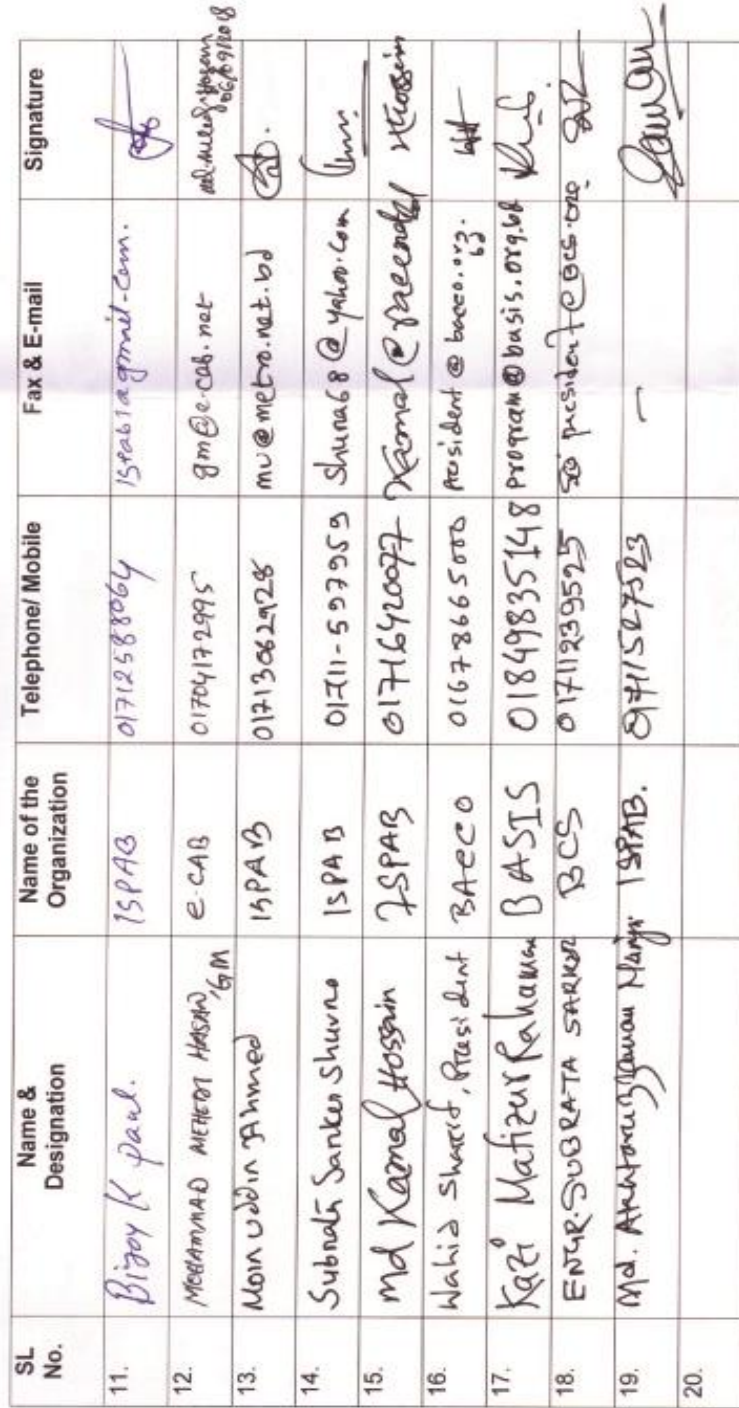 SL No. Name & Designation Name of the Organization Telephone/ Mobile Fax & E-mail Signature
11. Bijoy K paul. ISPAB 01712588064 ispab1agmil-com.
12. MOHAMMAD MEHEDI HASAN, GM e-CAB 01704172995 gm@e-cab.net 06/09/2018
13. Moin uddin Ahmed ISPAB 01713062928 mu@metro.net.bd
14. Subrata Sarker Shuvro ISPAB 01711-597959 Shuna68@yahoo.com
15. Md Kamal Hossain ISPAB 01716420077 Kamal@ Hossain
16. Wahid Sharif, President BACCO 01678665000 President@bacco.org.bd
17. Kazi Mafizur Rahaman BASIS 01849835148 program@basis.org.bd
18. ENGR. SUBRATA SARKAR BCS 01711239525 president@bcs.org
19. Md. Akhtaruzzaman Manju ISPAB. 01711527523 –
20.